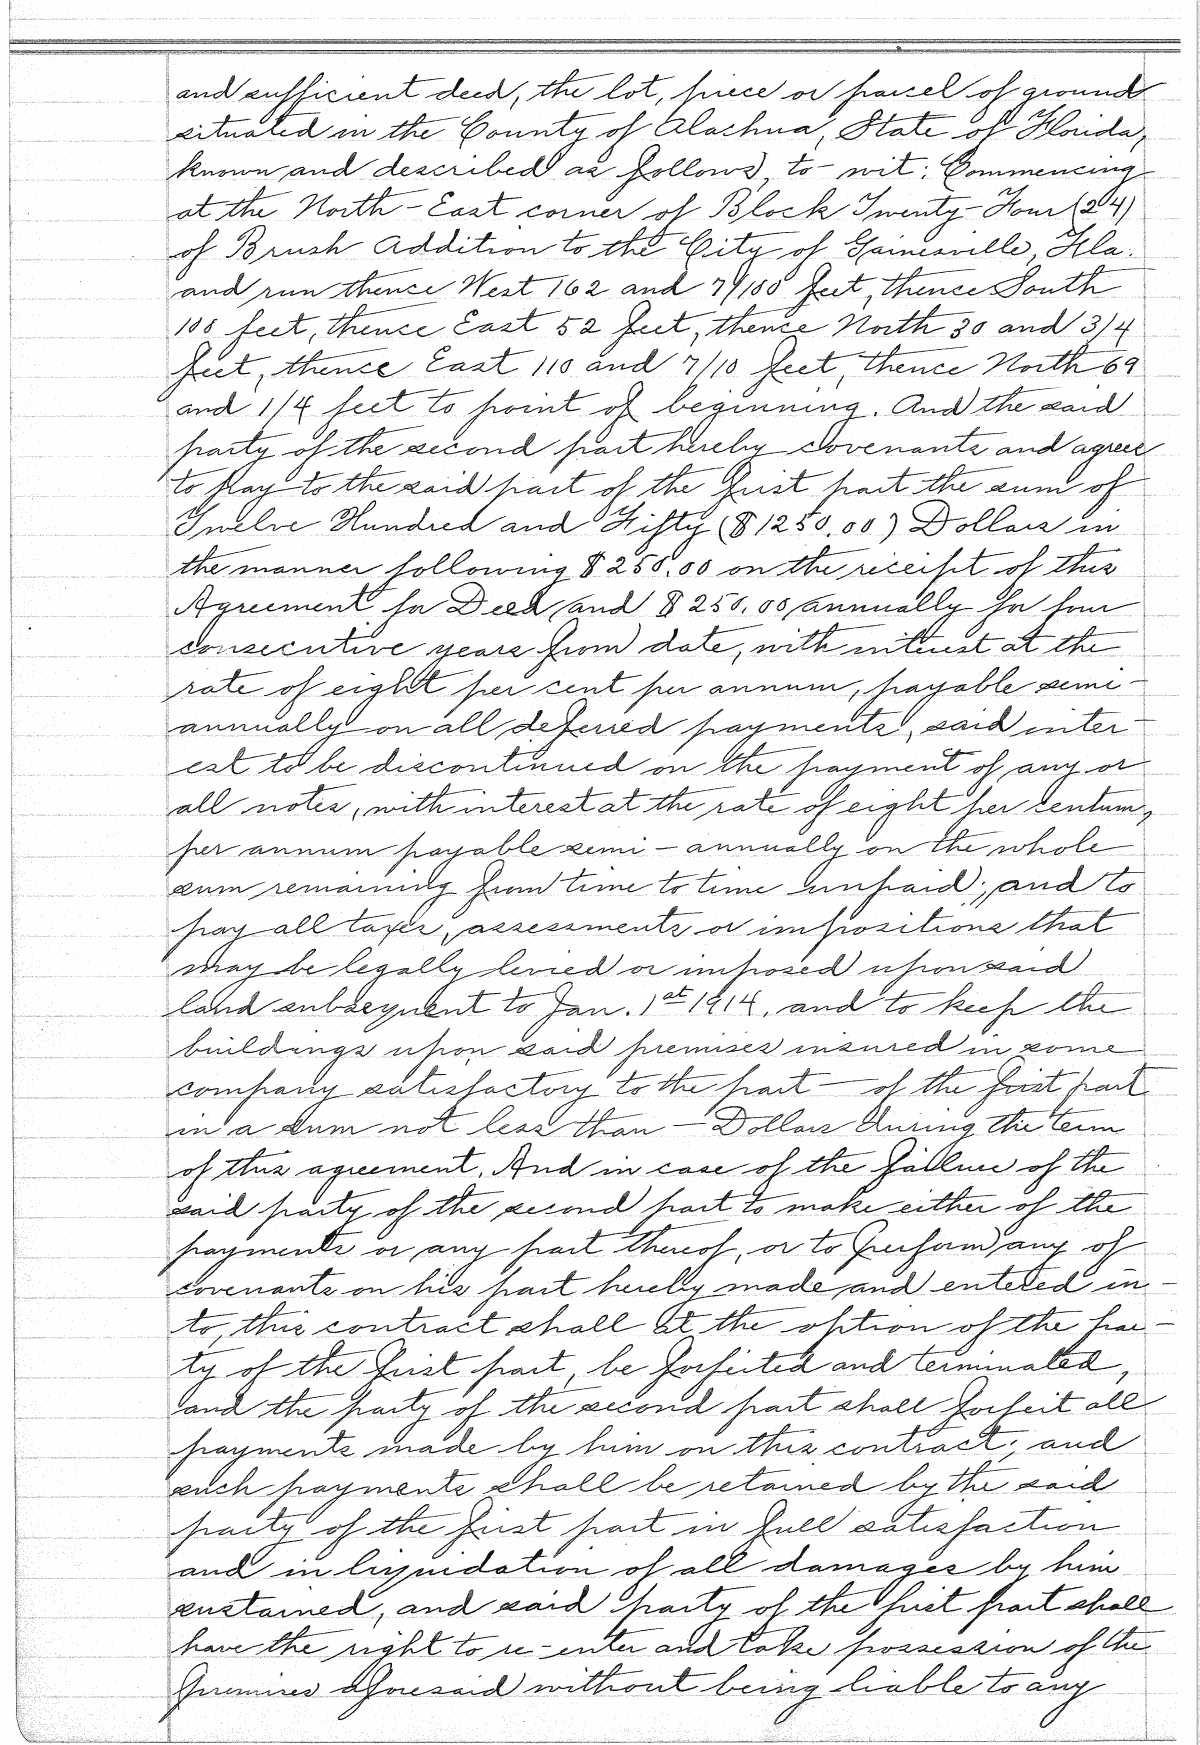 and sufficient deed, the lot, piece or parcel of ground
situated in the County of Alachua, State of Florida,
known and described as follows, to-wit: Commencing
at the North-East corner of Block Twenty-Four (24)
of Brush Addition to the City of Gainesville, Fla.
and run thence West 162 and 7/100 feet, thence South
100 feet, thence East 52 feet, thence North 30 and 3/4
feet, thence East 110 and 7/10 feet, thence North 69
and 1/4 feet to point of beginning. And the said
party of the second part hereby covenants and agrees
to pay to the said part of the first part the sum of
Twelve Hundred and Fifty ($1250.00) Dollars in
the manner following $250.00 on the receipt of this
Agreement for Deed and $250.00 annually for four
consecutive years from date, with interest at the
rate of eight per cent per annum, payable semi-
annually on all deferred payments, said inter-
est to be discontinued on the payment of any or
all notes, with interest at the rate of eight per centum,
per annum payable semi-annually on the whole
sum remaining from time to time unpaid; and to
pay all taxes, assessments or impositions that
may be legally levied or imposed upon said
land subsequent to Jan. 1st 1914, and to keep the
buildings upon said premises insured in some
company satisfactory to the part— of the first part
in a sum not less than — Dollars during the term
of this agreement. And in case of the failure of the
said party of the second part to make either of the
payments or any part thereof, or to perform any of
covenants on his part hereby made and entered in-
to, this contract shall at the option of the par-
ty of the first part, be forfeited and terminated,
and the party of the second part shall forfeit all
payments made by him on this contract; and
such payments shall be retained by the said
party of the first part in full satisfaction
and in liquidation of all damages by him
sustained, and said party of the first part shall
have the right to re-enter and take possession of the
premises aforesaid without being liable to any